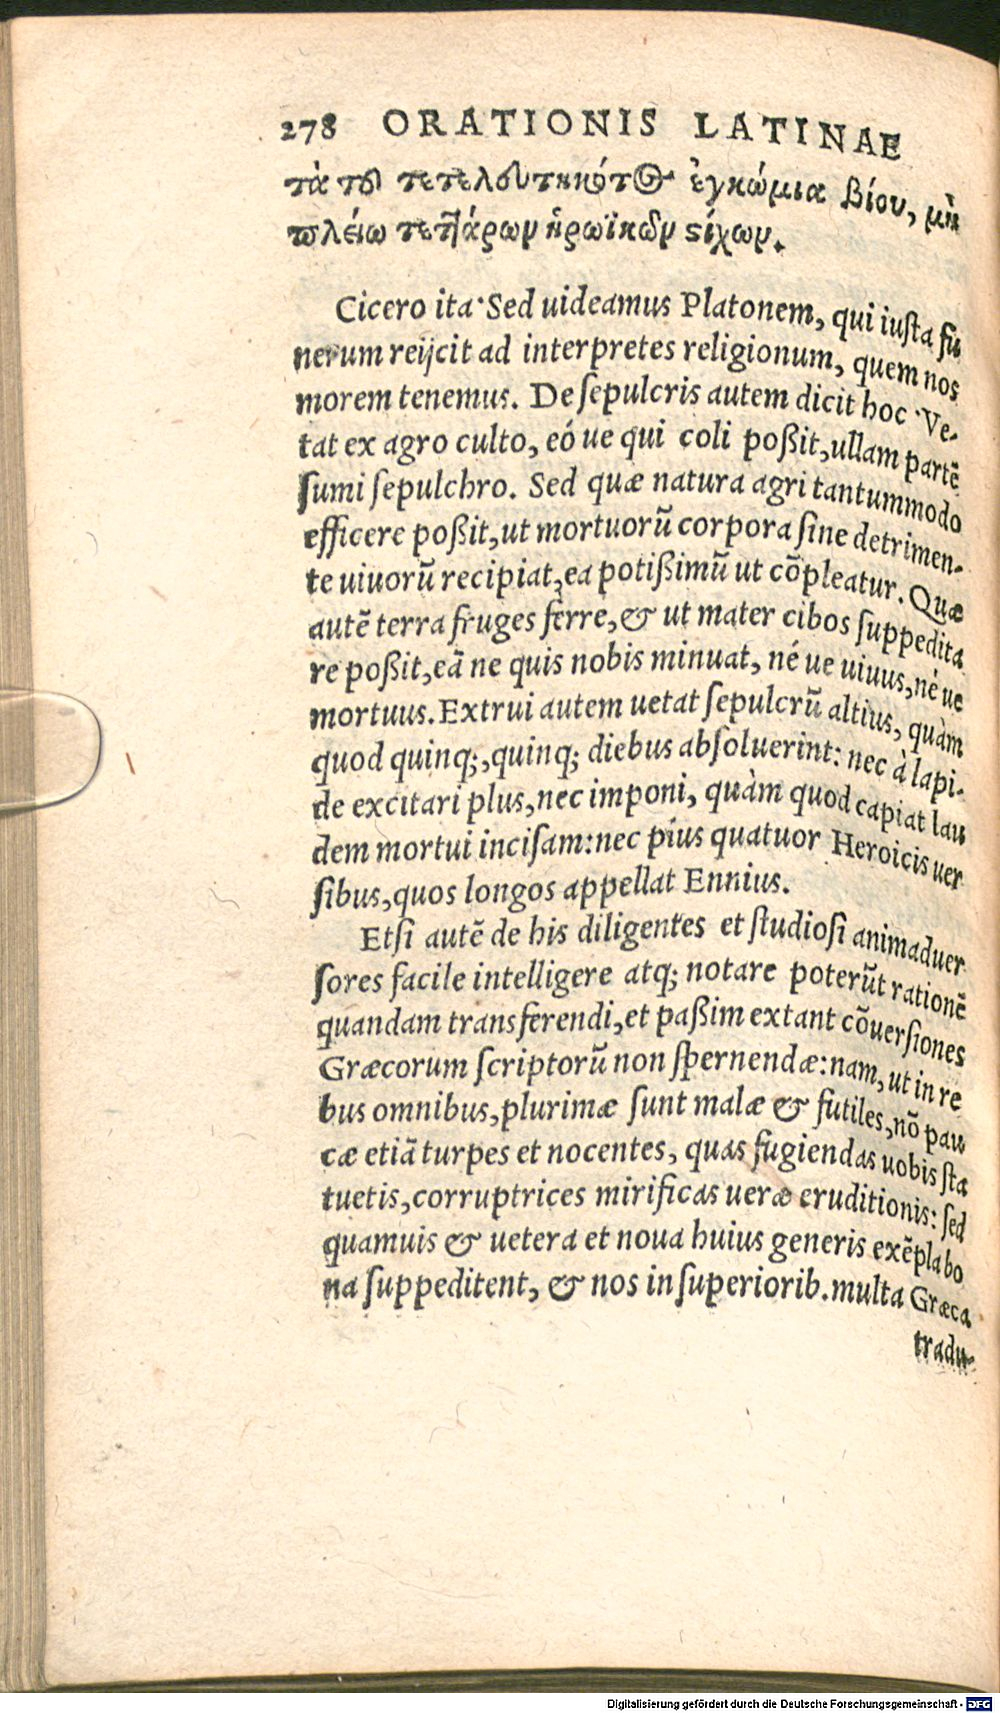 278 ORATIONIS LATINAE
τὰ τοῦ τετελευτηκότος ἐγκώμια βίου, μὴ
πλείω τεττάρων ἡρωϊκῶν στίχων.
Cicero ita· Sed uideamus Platonem, qui iusta fu
nerum reijcit ad interpretes religionum, quem nos
morem tenemus. De sepulcris autem dicit hoc· Ve-
tat ex agro culto, eó ue qui coli poßit, ullam partẽ
sumi sepulchro. Sed quæ natura agri tantummodo
efficere poßit, ut mortuorũ corpora sine detrimen-
te uiuorũ recipiat, ea potißimũ ut cõpleatur. Quæ
autẽ terra fruges ferre, & ut mater cibos suppedita
re poßit, eã ne quis nobis minuat, né ue uiuus, né ue
mortuus. Extrui autem uetat sepulcrũ altius, quàm
quod quinq;, quinq; diebus absoluerint: nec à lapi-
de excitari plus, nec imponi, quàm quod capiat lau
dem mortui incisam: nec plus quatuor Heroicis uer
sibus, quos longos appellat Ennius.
Etsi autẽ de his diligentes et studiosi animaduer
sores facile intelligere atq; notare poterũt rationẽ
quandam transferendi, et paßim extant cõuersiones
Græcorum scriptorũ non spernendæ: nam, ut in re
bus omnibus, plurimæ sunt malæ & futiles, nõ pau
cæ etiã turpes et nocentes, quas fugiendas uobis sta
tuetis, corruptrices mirificas ueræ eruditionis: sed
quamuis & uetera et noua huius generis exẽpla bo
na suppeditent, & nos in superiorib. multa Græca
tradu-
Digitalisierung gefördert durch die Deutsche Forschungsgemeinschaft - DFG